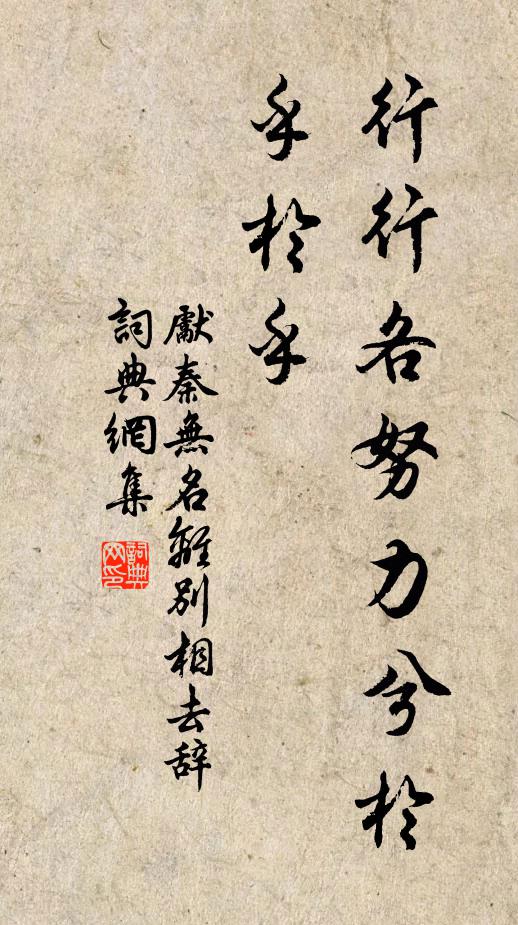 行行各努力兮於
乎於乎
獻秦無名離別相去辞
詞典網集
詞典
网印